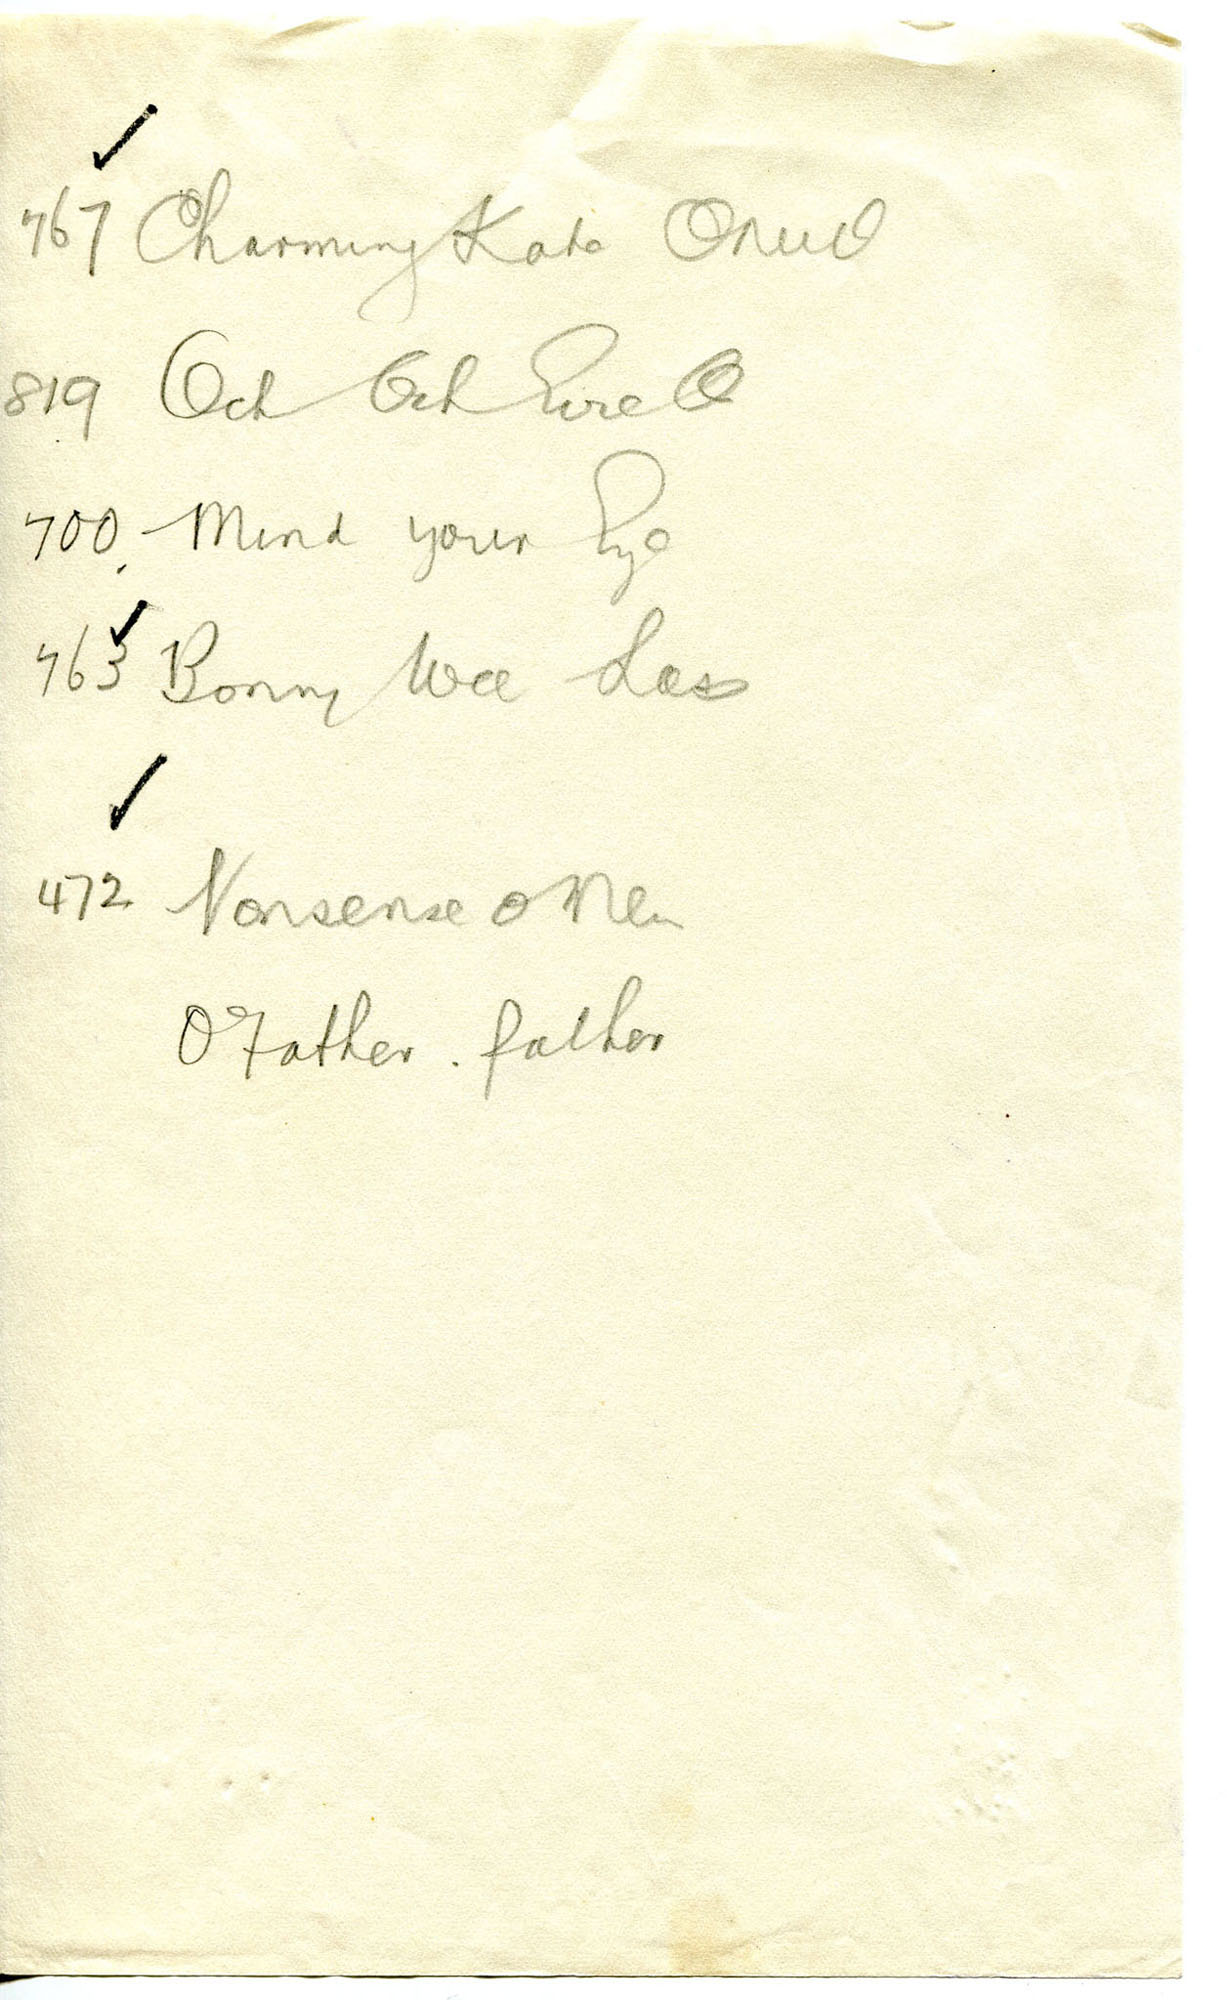 767 Charming Kate Oneill
819 Och Och Eire O
700. Mind your Eye
763 Bonny Wee Lass
472 Nonsense o Men
O Father. father